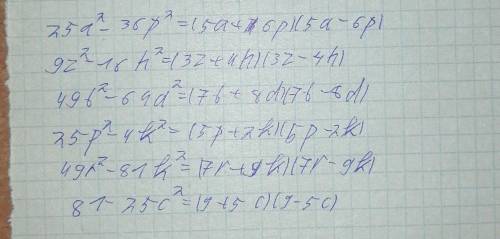 25a² - 36p² = (5a + 6p)(5a - 6p)
9z² - 16h² = (3z + 4h)(3z - 4h)
49b² - 64d² = (7b + 8d)(7b - 8d)
25p² - 4k² = (5p + 2k)(5p - 2k)
49r² - 81k² = (7r + 9k)(7r - 9k)
81 - 25c² = (9 + 5c)(9 - 5c)